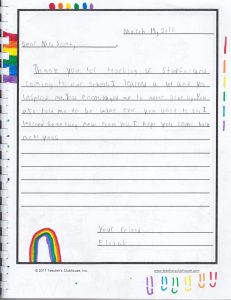 March 19, 2015
Dear Mrs. Young,
Thank you for teaching us stuff and
coming to our school. I learned a lot and you
inspired me. You encouraged me to never give up. You
also told me to be
learned something new from you. I hope you come back
next year.
Your friend
Elijah
© 2011 Teacher's Clubhouse, Inc.
www.teachersclubhouse.com